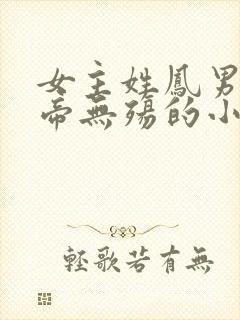 女主姓鳳男
帝無殤的小
輕歌若有無